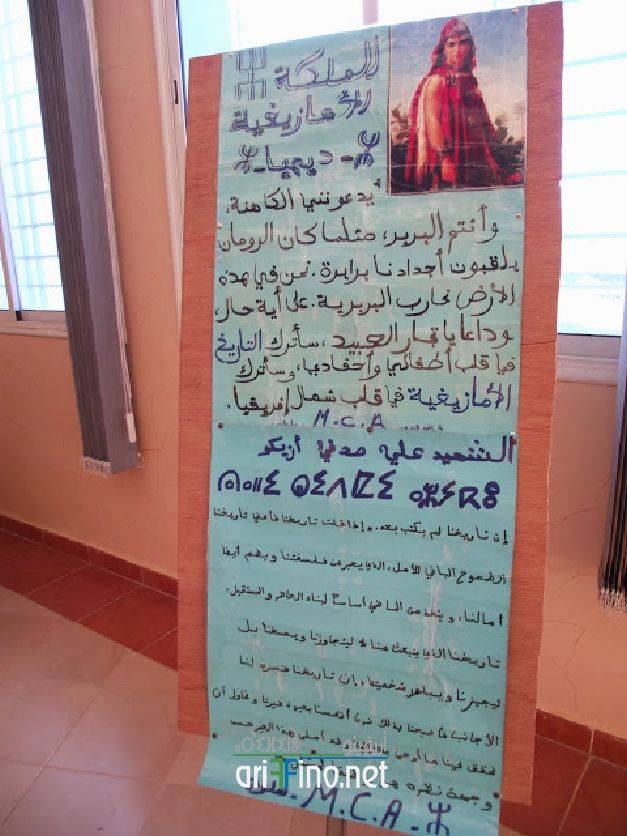 الملكة ⵣ
الأمازيغية
ⵣ - ديهيا - ⵣ
يدعونني الكاهنة،
وأنتم البربر، مثلما كان الرومان
يلقبون أجدادنا برابرة. نحن في هذه
الأرض نحارب البربرية. على أية حال،
وداعا يا تجار العبيد، سأترك التاريخ
في قلب أطفالي وأحفادي، وسأترك
الأمازيغية في قلب شمال إفريقيا.
M.C.A
الشهيد علي صدقي أزيكو
ⵄⴰⵍⵉ ⵚⵉⴷⵇⵉ ⴰⵣⵉⴽⵓ
إن تاريخنا لم يكتب بعد، وإذا قلنا تاريخنا فأعني تاريخنا
الطموح الباقي الأمل، الذي يعبر عن فلسفتنا ويهم أيضا
آمالنا، ويتخذ من الماضي أساسا لبناء الحاضر والمستقبل.
تاريخنا الذي ينبعث منا لا ليتجاوزنا ويمسخنا بل
ليعبر عنا ويبلور شخصيتنا، إن تاريخنا فسره لنا
الأجانب فأصبحنا بذلك نرى أنفسنا بعيون غيرنا ونحاول أن
نحقق فينا ما
وجهة نظره
M.C.A. ⵣ
أريفينو
ⴰⵔⵉⴼⵉⵏⵓ
ariffino.net